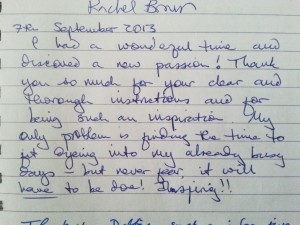 Rachel Brown
7th September 2013
I had a wonderful time and
discovered a new passion! Thank
you so much for your clear and
thorough instructions and for
being such an inspiration. My
only problem is finding the time to
fit dyeing into my already busy
days – but never fear, it will
have to be done! Inspiring!!